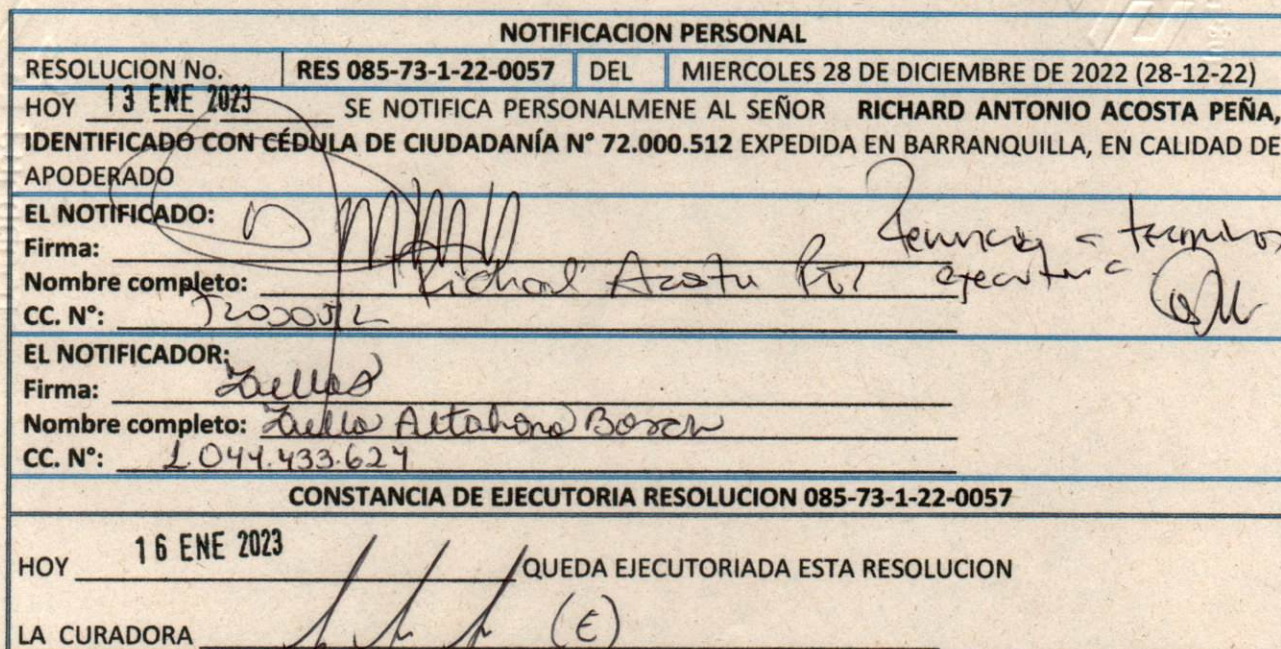 NOTIFICACION PERSONAL
RESOLUCION No. RES 085-73-1-22-0057 DEL MIERCOLES 28 DE DICIEMBRE DE 2022 (28-12-22)
HOY 13 ENE 2023 SE NOTIFICA PERSONALMENE AL SEÑOR RICHARD ANTONIO ACOSTA PEÑA,
IDENTIFICADO CON CÉDULA DE CIUDADANÍA N° 72.000.512 EXPEDIDA EN BARRANQUILLA, EN CALIDAD DE
APODERADO
EL NOTIFICADO:
Firma:
Renuncia a terminos
ejecutoria
Nombre completo: Richard Acosta
CC. N°: 72000512
EL NOTIFICADOR:
Firma:
Nombre completo: Altahona Bosch
CC. N°: 1.044.433.624
CONSTANCIA DE EJECUTORIA RESOLUCION 085-73-1-22-0057
HOY 16 ENE 2023 QUEDA EJECUTORIADA ESTA RESOLUCION
LA CURADORA (E)